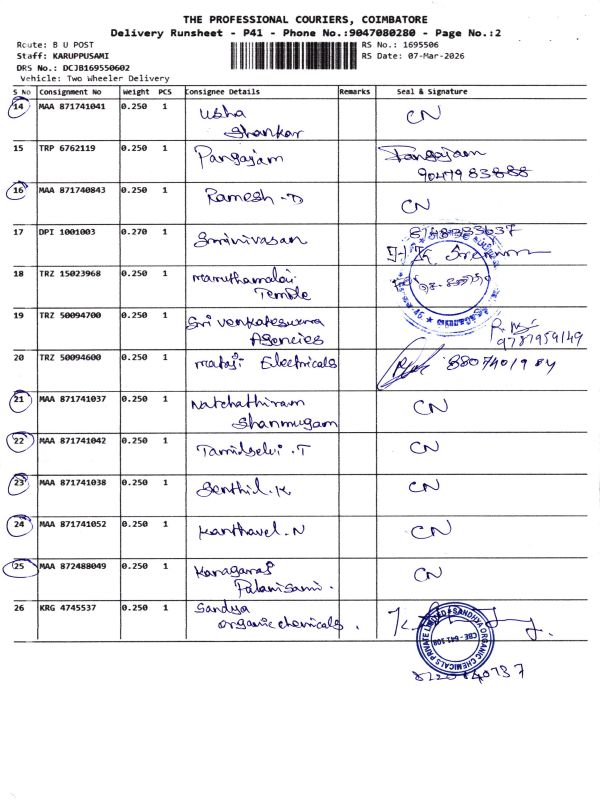 THE PROFESSIONAL COURIERS, COIMBATORE
Delivery Runsheet - P41 - Phone No.:9047080280 - Page No.:2
Route: B U POST
RS No.: 1695506
Staff: KARUPPUSAMI
RS Date: 07-Mar-2026
DRS No.: DCJB169550602
Vehicle: Two Wheeler Delivery
S No Consignment No Weight PCS Consignee Details Remarks Seal & Signature
14 MAA 871741041 0.250 1 Usha CN
Shankar
15 TRP 6762119 0.250 1 Pangajam Pangajam
9047983888
16 MAA 871740843 0.250 1 Ramesh.D CN
17 DPI 1001003 0.270 1 Srinivasan
18 TRZ 15023968 0.250 1 Maruthamalai
Temple
19 TRZ 50094700 0.250 1 Sri Venkateswara
Agencies 9787959149
20 TRZ 50094600 0.250 1 Mataji Electricals
21 MAA 871741037 0.250 1 Natchathiram CN
Shanmugam
22 MAA 871741042 0.250 1 Tamilselvi.T CN
23 MAA 871741038 0.250 1 Senthil.K CN
24 MAA 871741052 0.250 1 Kanthavel.N CN
25 MAA 872488049 0.250 1 Kanagaraj CN
Palanisami.
26 KRG 4745537 0.250 1 Sandya
organic chemicals.
SANDHYA ORGANIC CHEMICALS PRIVATE LIMITED
CBE - 641 108